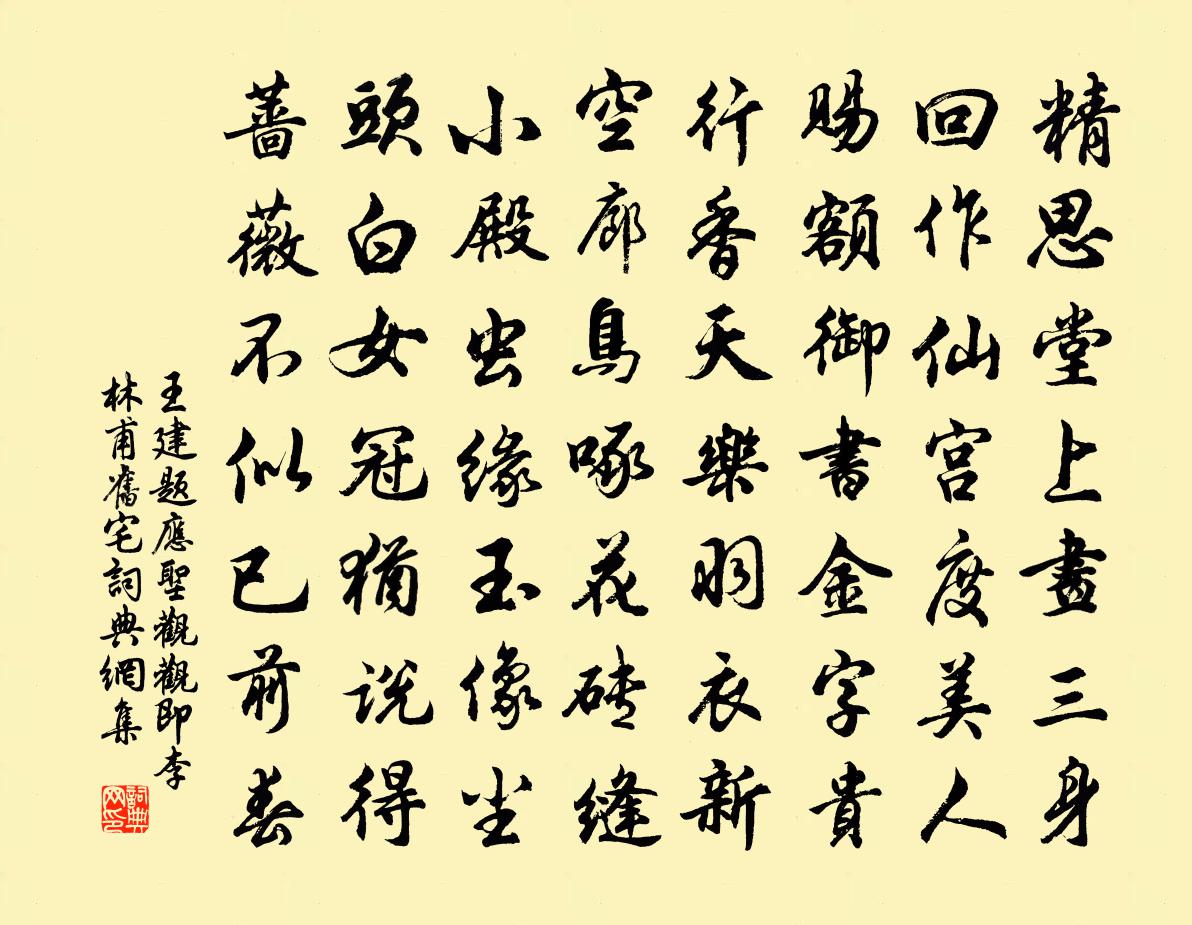 精思堂上畫三身
回作仙宫度美人
賜額御書金字貴
行香天樂羽衣新
空廊鳥啄花磚縫
小殿虫緣玉像尘
頭白女冠猶説得
薔薇不似已前春
王建題應聖觀觀即李
林甫舊宅詞典網集
詞典网印